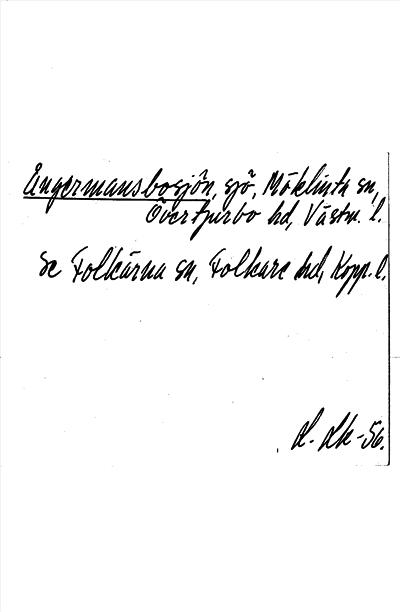 Engermansbosjön, sjö, Möklinta sn,
Övertjurbo hd, Västm. l.
Se Folkärna sn, Folkare hd, Kopp. l.
-56.